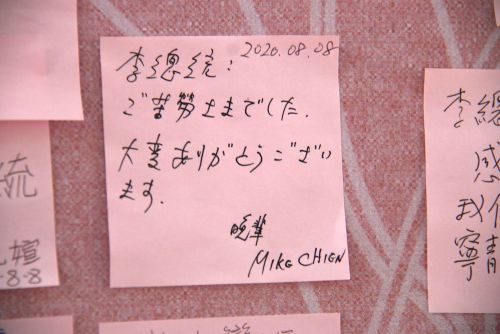 2020.08.08
李總統：
ご苦勞士までした.
大变ありがとうござい
ます.
晚輩
MIKE CHIEN
李總
感
我们
寧青
流
8-8